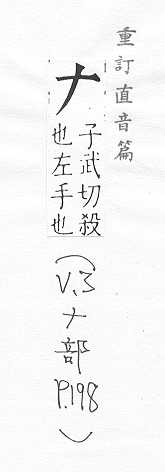 重訂直音篇
𠂇
子武切殺
也左手也
(V.3
𠂇部
P.198
)